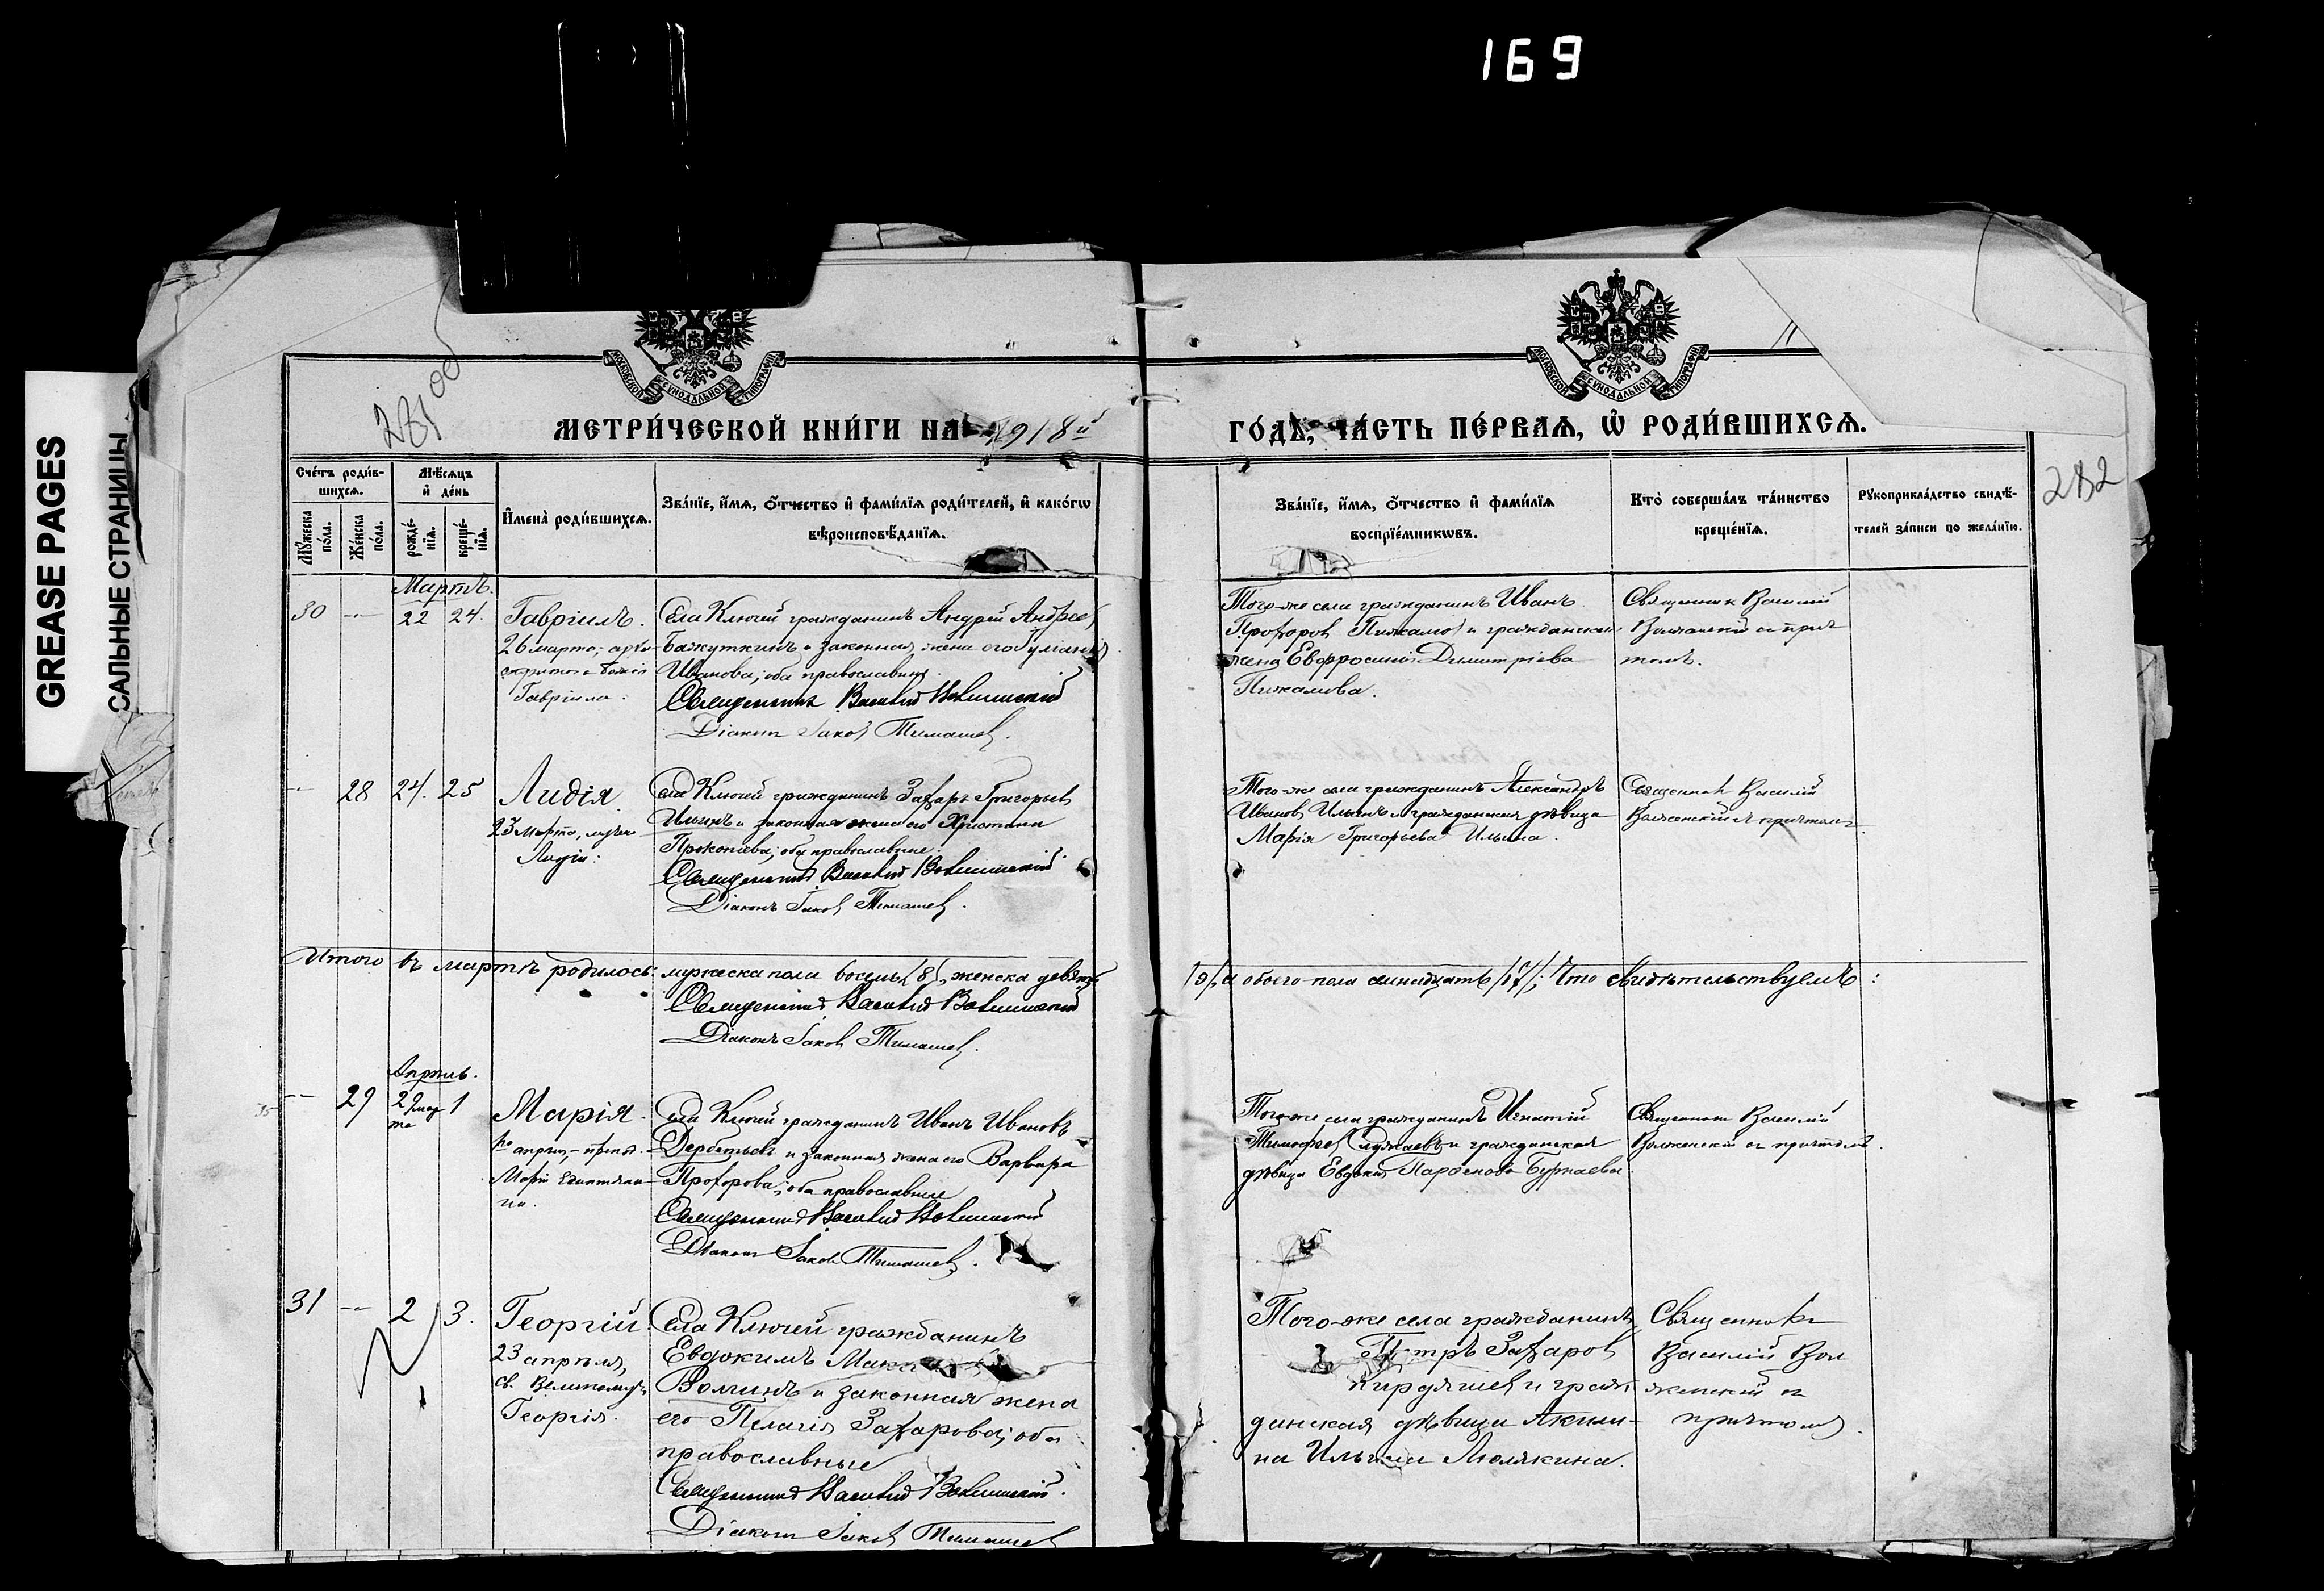 169
GREASE PAGES
САЛЬНЫЕ СТРАНИЦЫ
281 об
282
МОСКОВСКОЙ СѴНОДАЛЬНОЙ ТИПОГРАФІИ
МОСКОВСКОЙ СѴНОДАЛЬНОЙ ТИПОГРАФІИ
МЕТРИ́ЧЕСКОЙ КНИ́ГИ НА 1918й
ГО́ДЪ, ЧА́СТЬ ПЕ́РВАѦ, Ѡ҆ РОДИ́ВШИХСѦ.
Сче́тъ роди́в-
шихсѧ.
Мꙋ́жеска по́ла.
Же́нска по́ла.
Мѣ́сѧцъ
и҆ де́нь
рожде́-
нїѧ.
креще́-
нїѧ.
И҆мена̀ роди́вшихсѧ.
Зва́нїе, и҆́мѧ, ѻ҆́тчество и҆ фами́лїѧ роди́телей, и҆ како́гѡ
вѣроисповѣ́данїѧ.
Зва́нїе, и҆́мѧ, ѻ҆́тчество и҆ фами́лїѧ
воспрїе́мникѡвъ.
Кто̀ соверша́лъ та́инство
креще́нїѧ.
Рꙋкоприкла́дство свидѣ́-
телей за́писи по жела́нїю.
Мартъ.
30 — 22 24.
Гавріилъ.
26 марта,
Гавріила.
Села Ключей гражданинъ Андрей Андреев
Бажуткинъ и законная жена его Іуліанія
Иванова; оба православные.
Священник Василий Волженский
Діакон Іаков Тимашев.
Того-же села гражданинъ Иванъ
Прохоров и гражданская
жена Евфросинія Димитріева
Священник Василий
Волженский с прич
томъ.
— 28 24. 25
Лидія.
23 марта, муч.
Лидіи.
Села Ключей гражданинъ Захаръ Григорьев
Ильинъ и законная жена его Христина
Прокопіева; оба православные.
Священник Василий Волженский
Діаконъ Іаков Тимашев.
Того-же села гражданинъ Александръ
Иванов Ильинъ и гражданская дѣвица
Марія Григорьева Ильина.
Священник Василій
Волженскій с причтомъ.
Итого въ мартѣ родилось: мужеска пола восемь /8/, женска девять
/9/, а обоего пола семнадцать /17/; Что свидѣтельствуемъ:
Священник Василий Волженский
Діаконъ Іаков Тимашев.
Апрѣль.
— 29 29 мар
та
1
Марія.
1го апрѣл. – препод.
Маріи Египтян-
ни.
Села Ключей гражданинъ Иванъ Ивановъ
Дербетьевъ и законная жена его Варвара
Прохорова; оба православные
Священник Василий Волженский
Діакон Іаков Тимашев.
Того-же села гражданинъ Игнатій
Тимофеев и гражданская
дѣвица Евдокия Парфенова Бурнаева.
Священник Василий
Волженскій с причтомъ.
31 — 2 3.
Георгій.
23 апрѣля,
св. Великомуч.
Георгія.
Села Ключей гражданинъ
Евдокимъ
Волгинъ и законная жена
его Пелагія Захарова; оба
православные
Священник Василий Волженский.
Діакон Іаков Тимашев
Того-же села гражданинъ
Петръ Захаров
Кирдяшев и граж
данская дѣвица Акили-
на Ильина Люлякина.
Священникъ
Василій Вол
женский с
причтом.